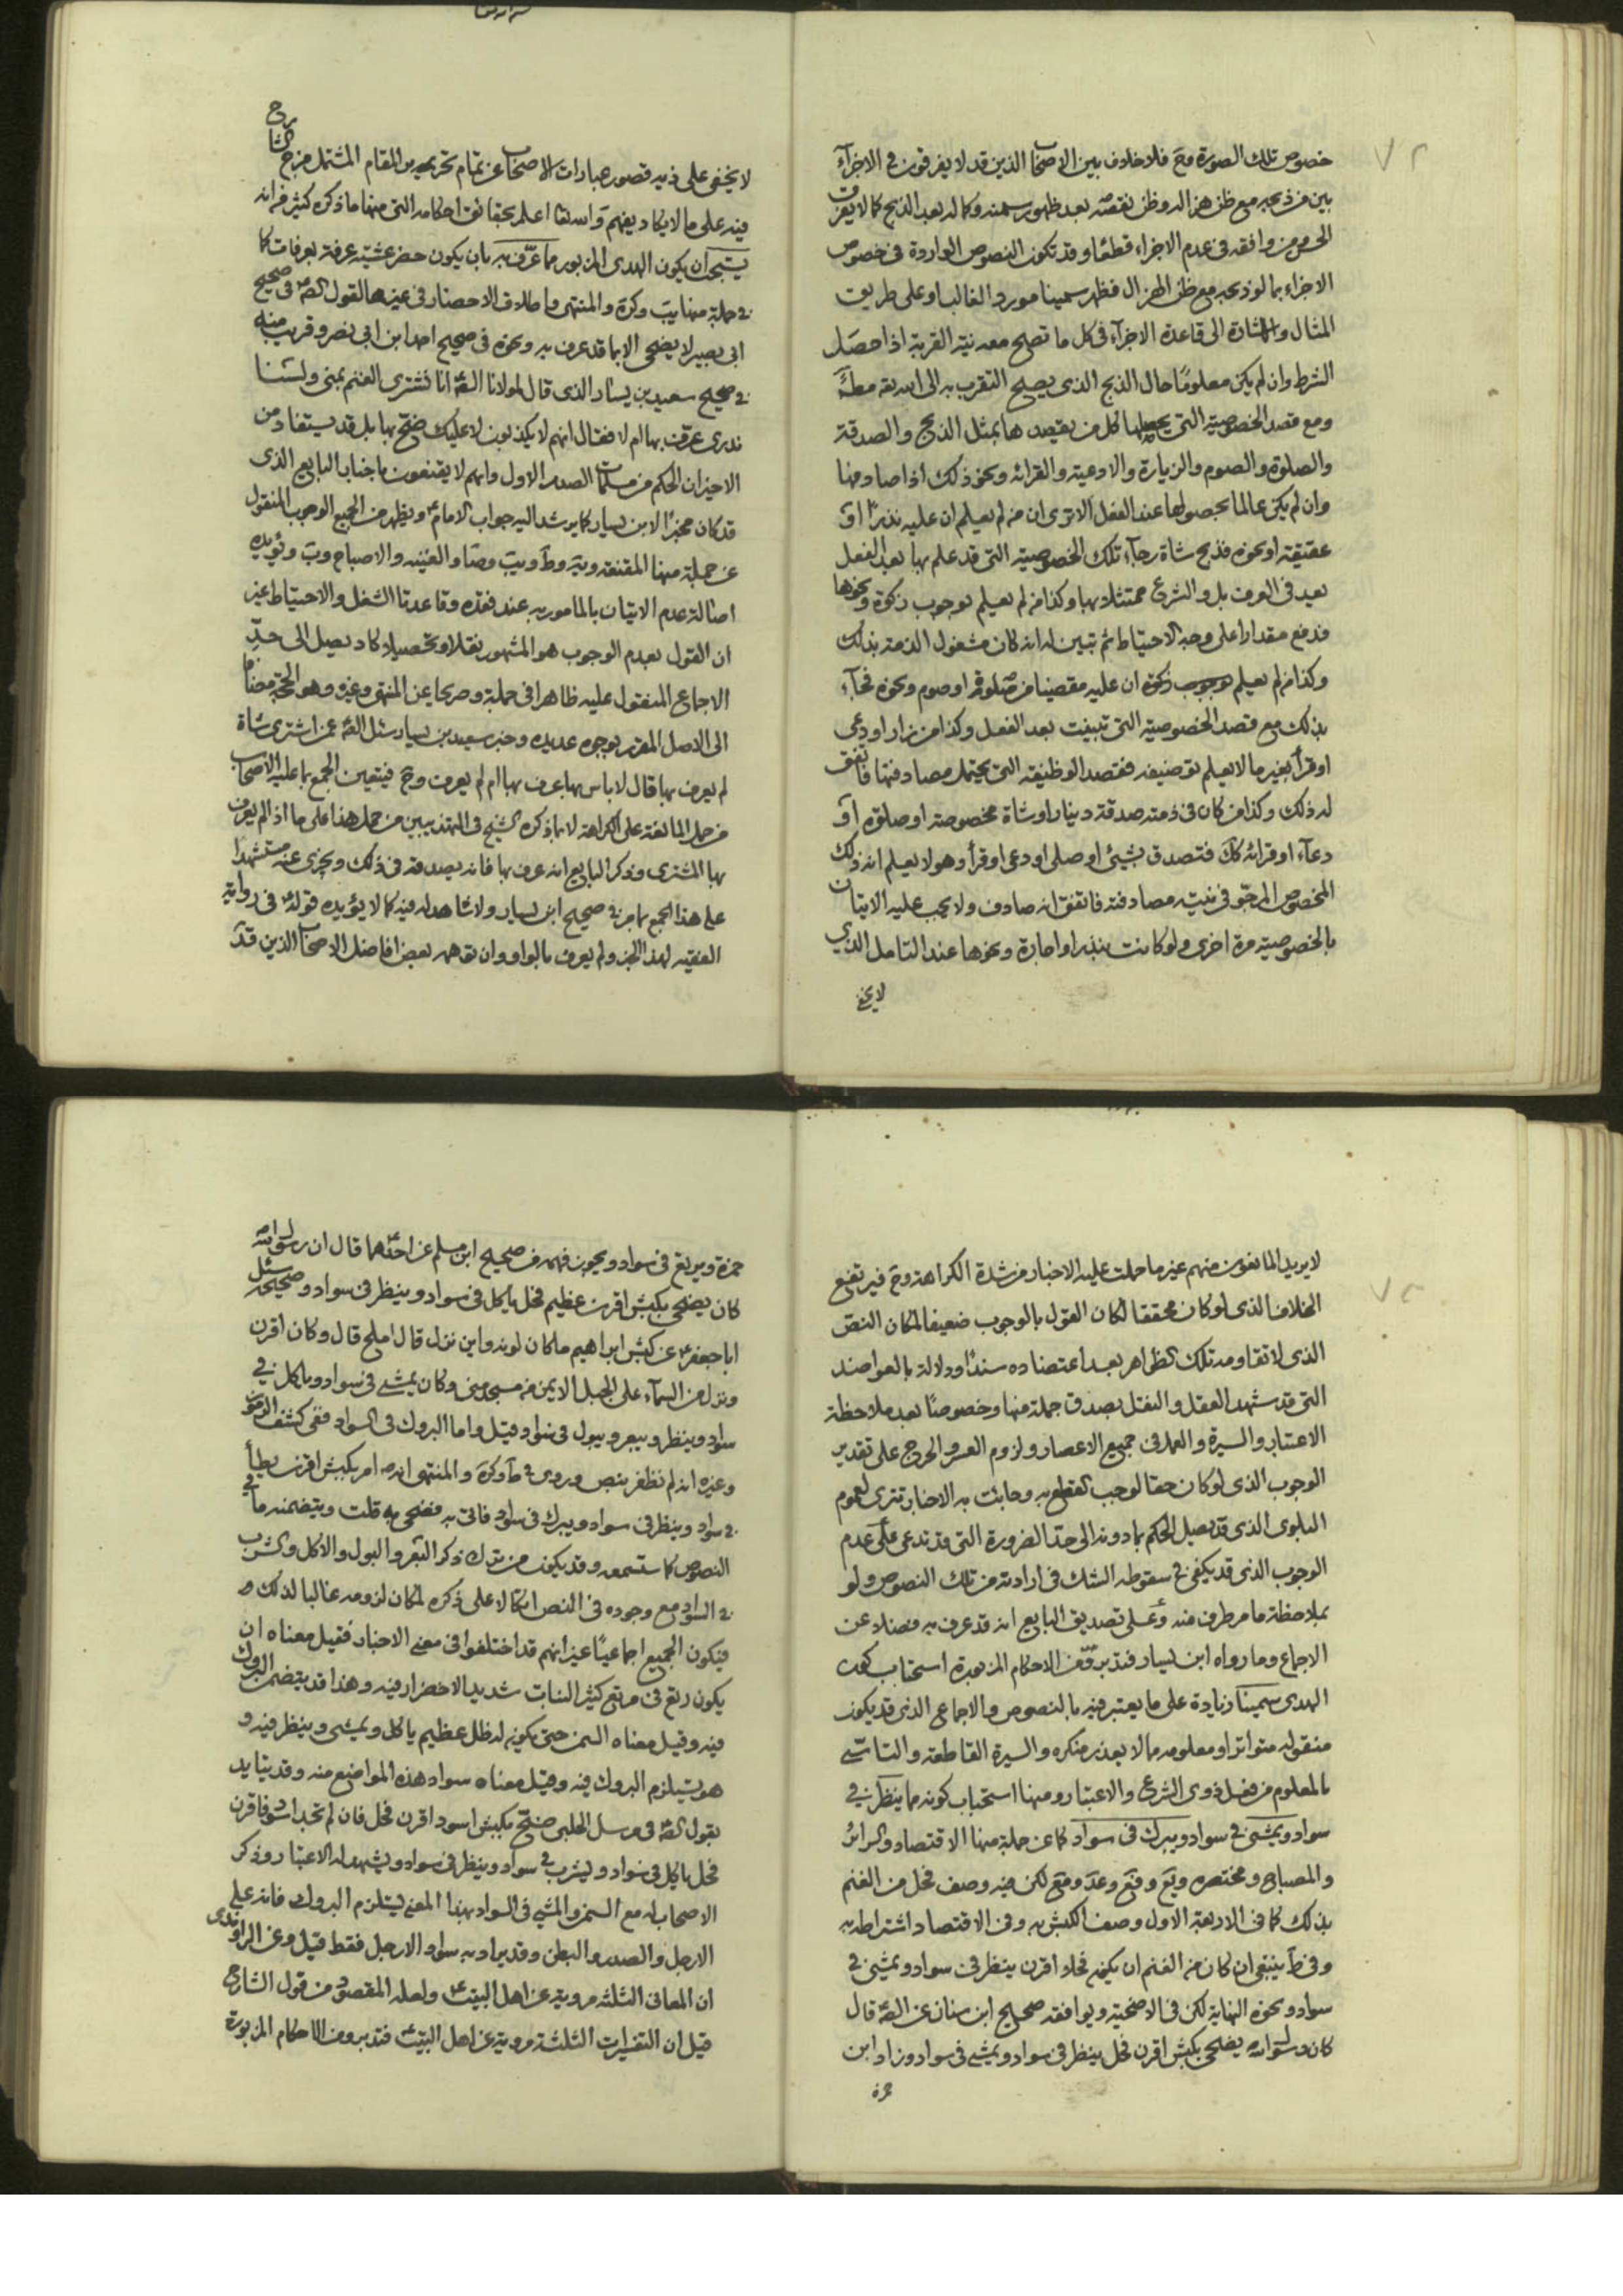 ٧٢
خصوص تلك الصورة وح فلا خلاف بين الاصحاب الذين قد لا يفرقون في الاجزاء
بين من ذبحه مع ظن هزاله وظن نقصه بعد ظهور سمنه وكماله بعد الذبح كما لا يفرق
ومن وافقه في عدم الاجزاء قطعا وقد تكون النصوص الواردة في خصوص
الاجزاء بما لو ذبحه مع ظن الهزال فظهر سمينا مورد الغالب او على طريق
المثال والاشارة الى قاعدة الاجزاء في كل ما تصلح معه نية القربة اذا حصل
الشرط وان لم يكن معلوما حال الذبح الذي يصلح التقرب به الى الله به مط
ومع قصد الخصوصية التي يجهلها كل من يقصدها بمثل الذبح والصدقة
والصلوة والصوم والزيارة والادعية والقرائة ونحو ذلك اذا صادفها
وان لم يكن عالما بحصولها عند الفعل الا ترى ان من لم يعلم ان عليه نذرا او
عقيقة او نحوه فذبح شاة رجاء تلك الخصوصية التي قد علم بها بعد الفعل
يعد في العرف بل والشرع ممتثلا بها وكذا من لم يعلم بوجوب زكوة ونحوها
فدفع مقدارا على وجه الاحتياط ثم تبين له انه كان مشغول الذمة بذلك
وكذا من لم يعلم بوجوب زكوة ان عليه مقضيا من صلوة او صوم ونحوه فجاء
بذلك مع قصد الخصوصية التي تبينت بعد الفعل وكذا من زار او دعى
او قرأ بغير ما لا يعلم توصيفه فقصد الوظيفة التي يحتمل مصادفتها فاتفق
له ذلك وكذا من كان في ذمته صدقة دينار او شاة مخصوصة او صلوة او
دعاء او قرائة كك فتصدق بشيء او صلى او دعى او قرأ وهو لا يعلم انه ذلك
المخصوص المرجو في نيته مصادفته فاتفق انه صادف ولا يجب عليه الاتيان
بالخصوصية مرة اخرى ولو كانت بنذر او اجارة ونحوها عند التامل الذي
لا يخفى
لا يخفى على ذيه قصور عبارات الاصحاب عن تمام تحرير المقام المشتمل
فيه على ما لا يكاد يفهم والله تعا اعلم بحقائق احكامه التي منها ما ذكره كثير من انه
يستحب ان يكون الهدى المزبور مما عرف به بان يكون حضر عشية عرفة بعرفات كما
في جملة منها يب وكره والمنتهى واطلاق الاحضار في غيرها لقول الصم في صحيح
ابي بصير لا يضحى الا بما قد عرف به ونحوه في صحيح احمد ابن ابي نصر وقريب منه
في صحيح سعيد بن يسار الذي قال لمولانا الصم انا نشتري الغنم بمنى ولسنا
ندري عرف بها ام لا فقال انهم لا يكذبون لا عليك ضح بها بل قد يستفاد من
الاخير ان الحكم من مسلمات الصدر الاول وانهم لا يقنعون باخبار البايع الذي
قد كان مخبرا لابن يسار كما يرشد اليه جواب الامام ويظهر من الجميع الوجوب المنقول
عن جملة منها المقنعة ويه وط ويب وصا والغنيه والاصباح ويب ويؤيده
اصالة عدم الاتيان بالمامور به عند فقده وقاعدتا الشغل والاحتياط غير
ان القول بعدم الوجوب هو المشهور نقلا وتحصيلا كاد يصل الى حد
الاجماع المنقول عليه ظاهرا في جملة وصريحا عن المنتهى وغيره وهو الحجة مضافا
الى الاصل المقرر بوجوه عديده وخبر سعيد بن يسار سئل الصم عمن اشترى شاة
لم يعرف بها قال لا باس بها عرف بها ام لم يعرف وح فيتعين الجمع بما عليه الاصحاب
من حمل المانعة على الكراهة لا بما ذكره الشيخ في التهذيبين من حمل هذا على ما اذا لم يعرف
بها المشتري وذكر البايع انه عرف بها فانه يصدقه في ذلك ويجزي عنه مستشهدا
على هذا الجمع بما مر في صحيح ابن يسار ولا شاهد له فيه كما لا يؤيده قوله في رواية
الفقيه لهذا الخبر ولم يعرف بالواو وان توهمه بعض افاضل الاصحاب الذين قد
٧٣
لا يريد المانعون منهم غير ما حملت عليه الاخبار من شدة الكراهة وح فيرتفع
الخلاف الذي لو كان محققا لكان القول بالوجوب ضعيفا لمكان النص
الذي لا تقاومه تلك الظواهر بعد اعتضاده سندا ودلالة بالعواضد
التي قد شهد العقل والنقل بصدق جملة منها وخصوصا بعد ملاحظة
الاعتبار والسيرة والعمل في جميع الاعصار ولزوم العسر والحرج على تقدير
الوجوب الذي لو كان حقا لوجب القطع به وجائت به الاخبار تترى لعموم
البلوى الذي قد يصل الحكم بما دونه الى حد الضرورة التي قد تدعى على عدم
الوجوب الذي قد يكفي في سقوطه الشك في ارادته من تلك النصوص ولو
بملاحظة ما مر طرف منه وعلى تصديق البايع انه قد عرف به فضلا عن
الاجماع وما رواه ابن يسار فتدبر وقف الاحكام المزبورة استحباب كون
الهدى سمينا زيادة على ما يعتبر فيه بالنصوص والاجماع الذي قد يكون
منقوله متواترا ومعلومه مما لا يعذر منكره والسيرة القاطعة والتاسي
بالمعلوم من فعل ذوي الشرع والاعتبار ومنها استحباب كونه مما ينظر في
سواد ويمشي في سواد ويبرك في سواد كما عن جملة منها الاقتصاد والسرائر
والمصباح ومختصره ويع وقع وعد ومع لكن فيه وصف فحل من الغنم
بذلك كما في الاربعة الاول وصف الكبش به وفي الاقتصاد اشتراطه به
وفي ط ينبغي ان كان من الغنم ان يكون فحلا اقرن ينظر في سواد ويمشي في
سواد ونحوه النهاية لكن في الاضحية ويوافقه صحيح ابن سنان عن الصم قال
كان رسول الله يضحى بكبش اقرن فحل ينظر في سواد ويمشي في سواد وزاد ابن
حمزة
حمزة ويرتع في سواد ونحوه في صحيح ابن مسلم عن احدهما قال ان رسول الله
كان يضحى بكبش اقرن عظيم فحل ياكل في سواد وينظر في سواد وصحيحه سئل
ابا جعفر عن كبش ابراهيم ما كان لونه واين نزل قال املح قال وكان اقرن
ونزل من السماء على الجبل الايمن من مسجد منى وكان يمشي في سواد وياكل في
سواد وينظر ويبعر ويبول في سواد قيل واما البروك في السواد ففي كشف الرموز
وغيره انه لم نظفر بنص وروى في ط وكره والمنتهى انه امر بكبش اقرن يطأ
في سواد وينظر في سواد ويبرك في سواد فاتى به فضحى به قلت ويتضمنه ما في
النصوص كما ستسمعه وقد يكون من ترك ذكر البعر والبول والاكل والشرب
في السواد مع وجوده في النص اتكالا على ذكره لمكان لزومه غالبا لذلك و
فيكون الجميع اجماعيا غير انهم قد اختلفوا في معنى الاخبار فقيل معناه ان
يكون رتع في مرتع كثير النبات شديد الاخضرار فيه وهذا قد يتضمن البروك
فيه وقيل معناه السمن حتى يكون له ظل عظيم ياكل ويمشي وينظر فيه و
هو يستلزم البروك فيه وقيل معناه سواد هذه المواضع منه وقد يتايد
بقول الصم في مرسل الحلبي ضح بكبش اسود اقرن فحل فان لم تجد اسود فاقرن
فحل ياكل في سواد ويشرب في سواد وينظر في سواد ويشهد له الاعتبار وذكر
الاصحاب له مع السمن والمشي في السواد بهذا المعنى يستلزم البروك فانه على
الارجل والصدر والبطن وقد يراد به سواد الارجل فقط قيل وعن الراوندى
ان المعاني الثلثه مروية عن اهل البيت ولعله المقصود من قول الشارح
قيل ان التفسيرات الثلثة مروية عن اهل البيت فتدبر وقف الاحكام المزبورة